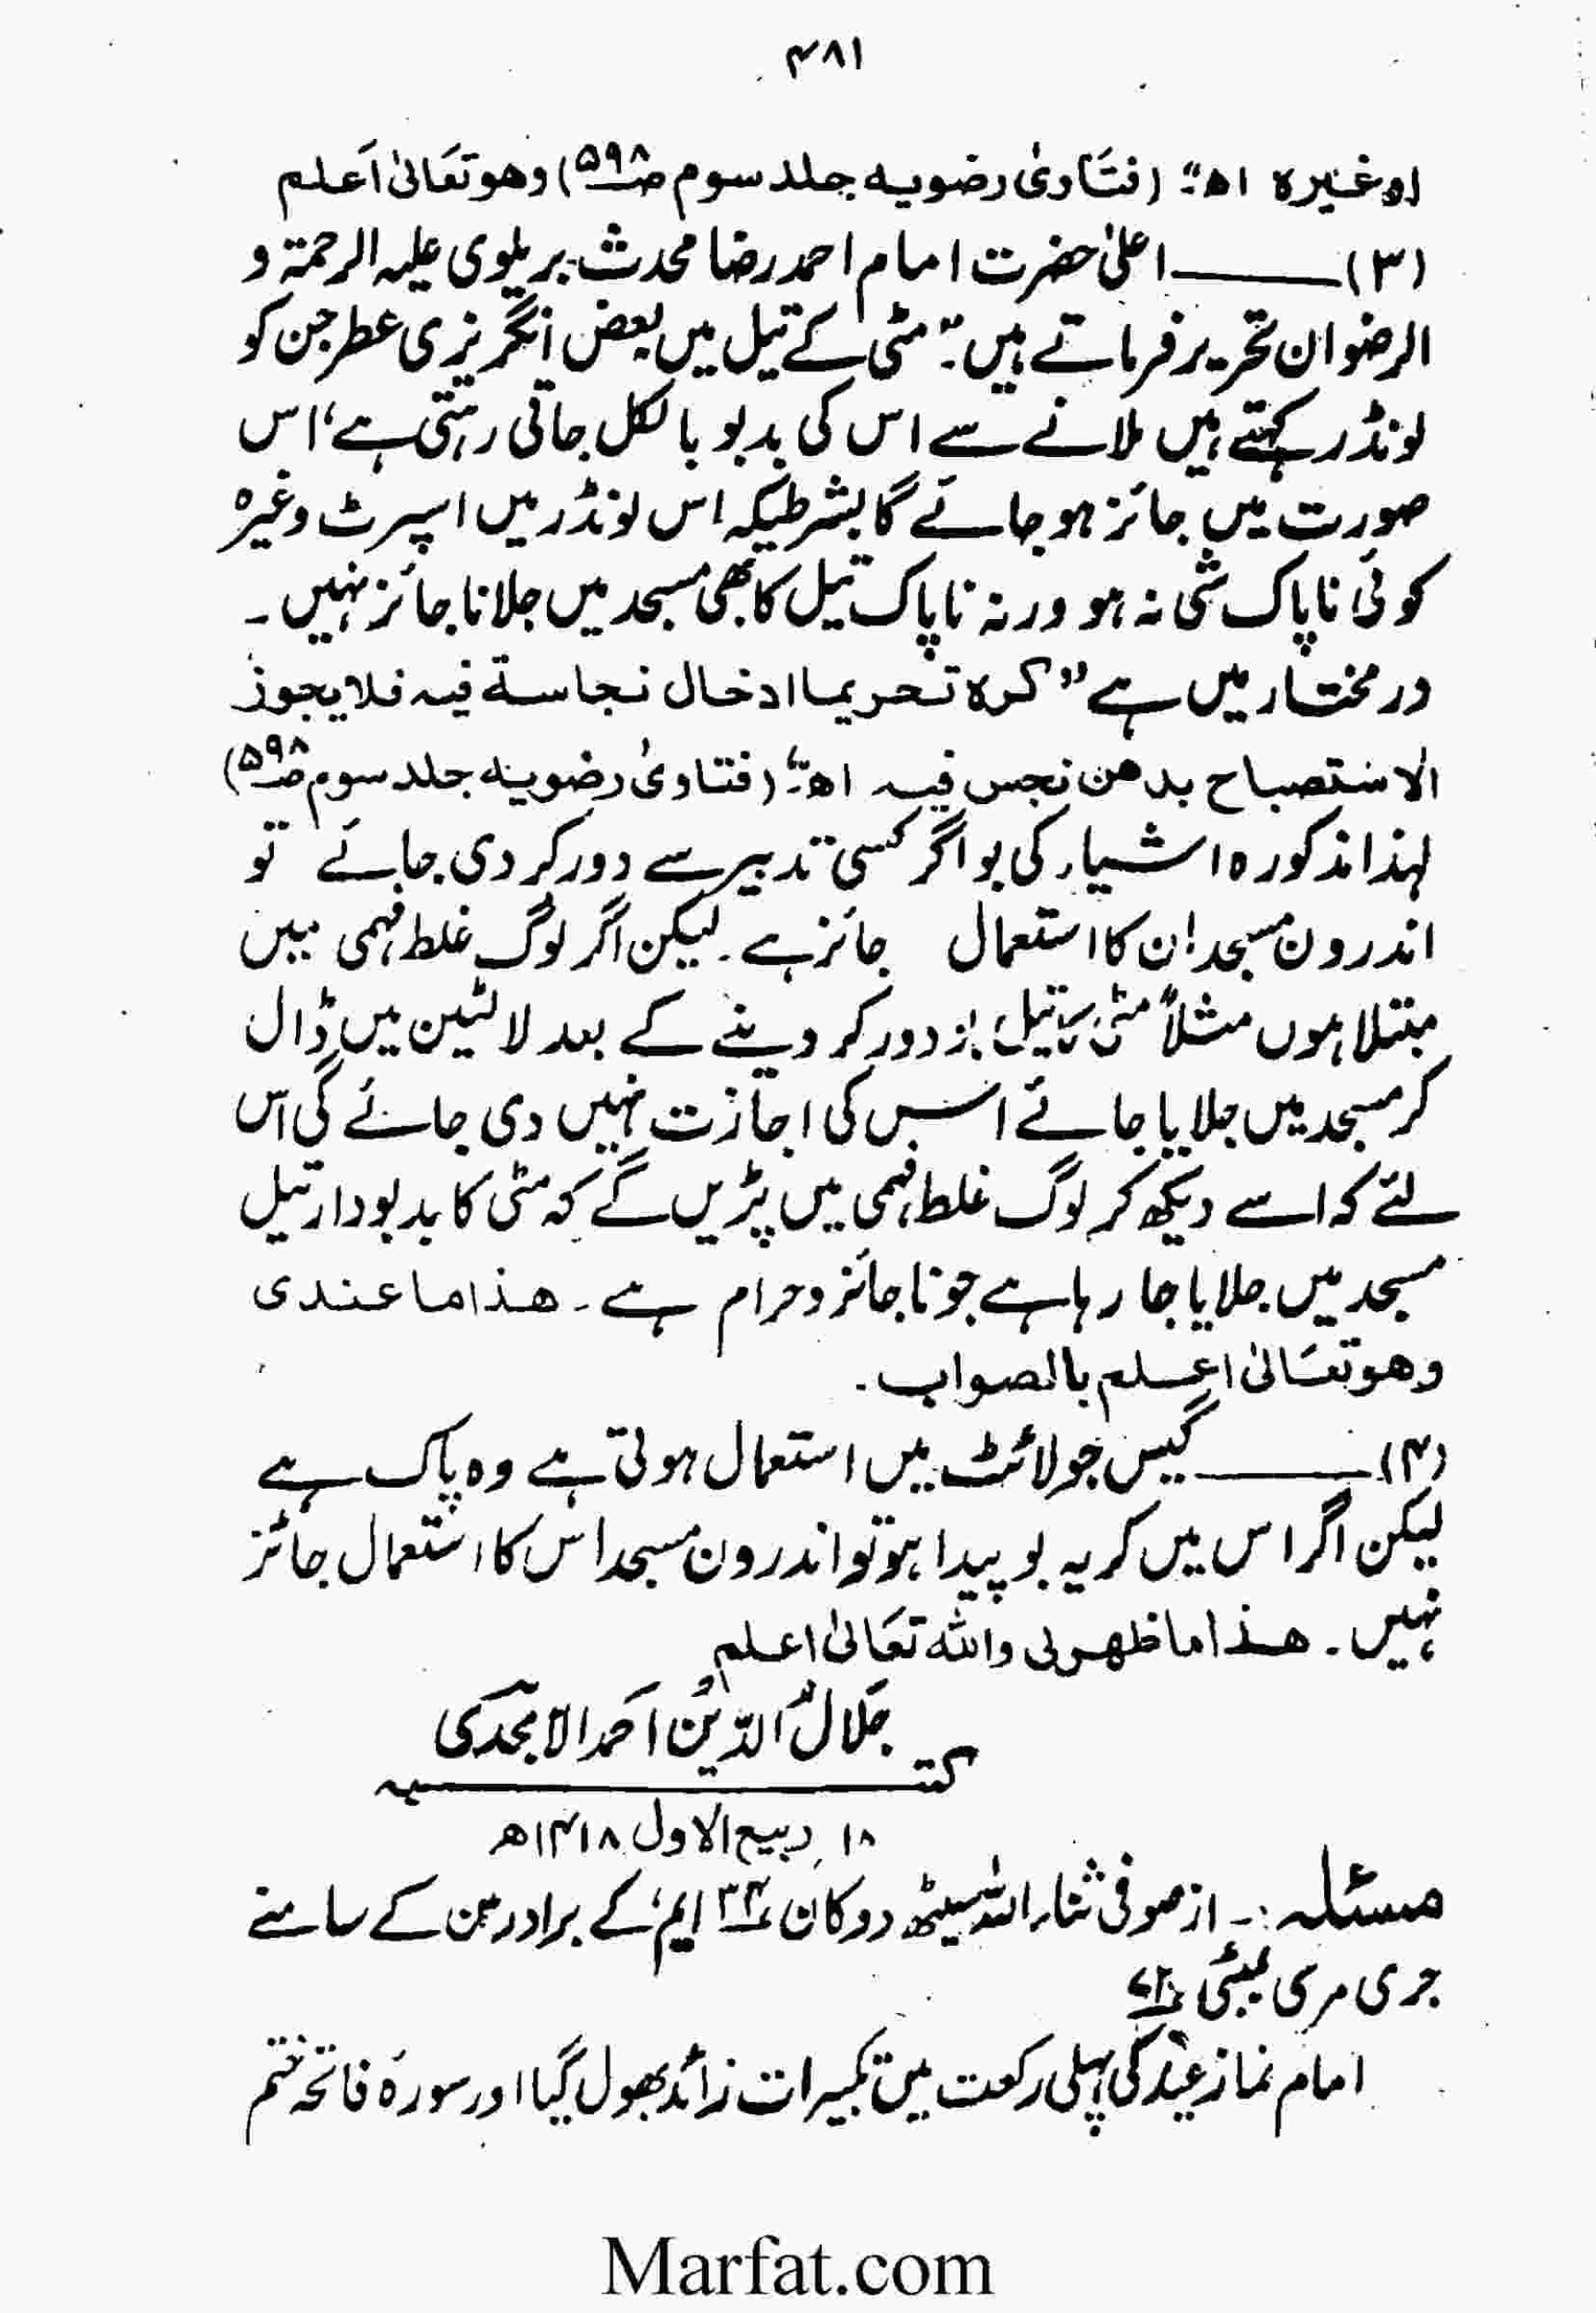 ۴۸۱
او غیرہ اھ" (فتاویٰ رضویہ جلد سوم ص۵۹۸) وھو تعالیٰ اعلم
(۳)ــــــ اعلیٰ حضرت امام احمد رضا محدث بریلوی علیہ الرحمۃ و
الرضوان تحریر فرماتے ہیں: "مٹی کے تیل میں بعض انگریزی عطر جن کو
لونڈر کہتے ہیں ملانے سے اس کی بدبو بالکل جاتی رہتی ہے، اس
صورت میں جائز ہو جائے گا بشرطیکہ اس لونڈر میں اسپرٹ وغیرہ
کوئی ناپاک شی نہ ہو ورنہ ناپاک تیل کا بھی مسجد میں جلانا جائز نہیں۔
در مختار میں ہے "کرہ تحریما ادخال نجاسۃ فیہ فلا یجوز
الاستصباح بدھن نجس فیہ اھ" (فتاویٰ رضویہ جلد سوم ص۵۹۸)
لہذا مذکورہ اشیاء کی بو اگر کسی تدبیر سے دور کر دی جائے تو
اندرون مسجد ان کا استعمال جائز ہے۔ لیکن اگر لوگ غلط فہمی میں
مبتلا ہوں مثلاً مٹی کا تیل بو دور کر دینے کے بعد لالٹین میں ڈال
کر مسجد میں جلایا جائے اس کی اجازت نہیں دی جائے گی اس
لئے کہ اسے دیکھ کر لوگ غلط فہمی میں پڑیں گے کہ مٹی کا بدبودار تیل
مسجد میں جلایا جا رہا ہے جو ناجائز و حرام ہے۔ ھذا ما عندی
وھو تعالیٰ اعلم بالصواب۔
(۴)ــــــ گیس جو لائٹ میں استعمال ہوتی ہے وہ پاک ہے
لیکن اگر اس میں کریہ بو پیدا ہو تو اندرون مسجد اس کا استعمال جائز
نہیں۔ ھذا ما ظھر لی واللہ تعالیٰ اعلم
جلال الدین احمد الامجدی
کتبــــــہ
۱۸ ربیع الاول ۱۴۱۸ھ
مسئلہ:۔ از صوفی ثناء اللہ سیٹھ دوکان ۳۴ ایم کے برادرس کے سامنے
جری مری بمبئی
امام نماز عید کی پہلی رکعت میں تکبیرات زائد بھول گیا اور سورۂ فاتحہ ختم
Marfat.com